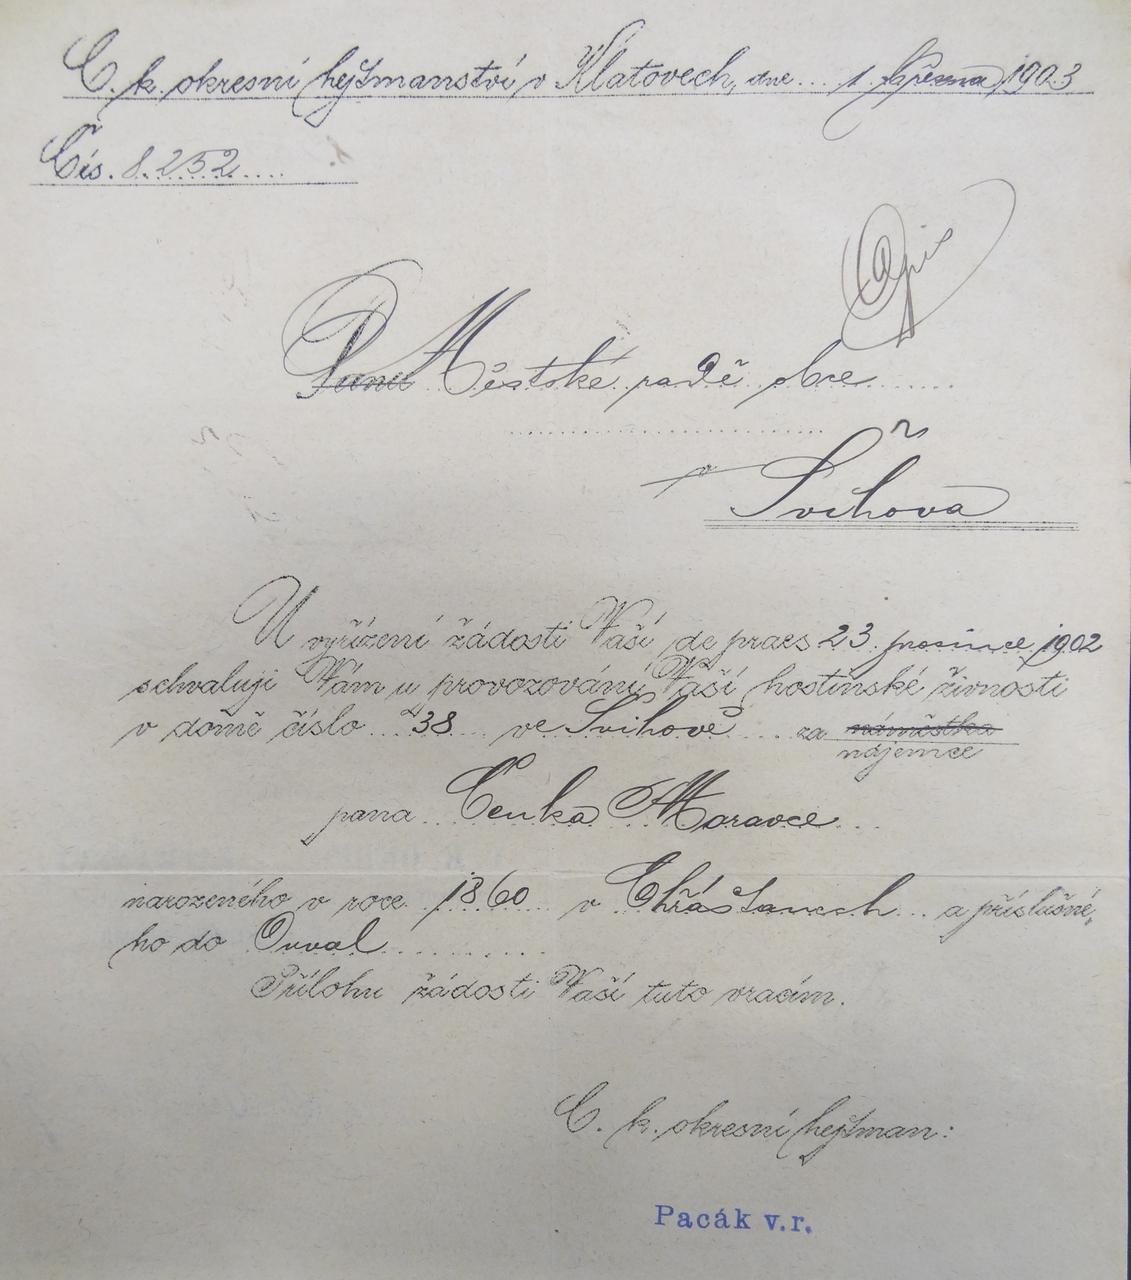 C. k. okresní hejtmanství v Klatovech, dne ... 1. března 1903
Čís. 8.252....
Opis
Panu Městské radě obce
v
Švihova
U vyřízení žádosti Vaší de praes 23. prosince 1902
schvaluji Vám u provozování Vaší hostinské živnosti
v domě číslo 38 ve Švihově za náměstka
nájemce
pana Čeňka Moravce
narozeného v roce 1860 v Chrášťanech a příslušné
ho do Ouval
Přílohu žádosti Vaší tuto vracím.
C. k. okresní hejtman:
Pacák v.r.